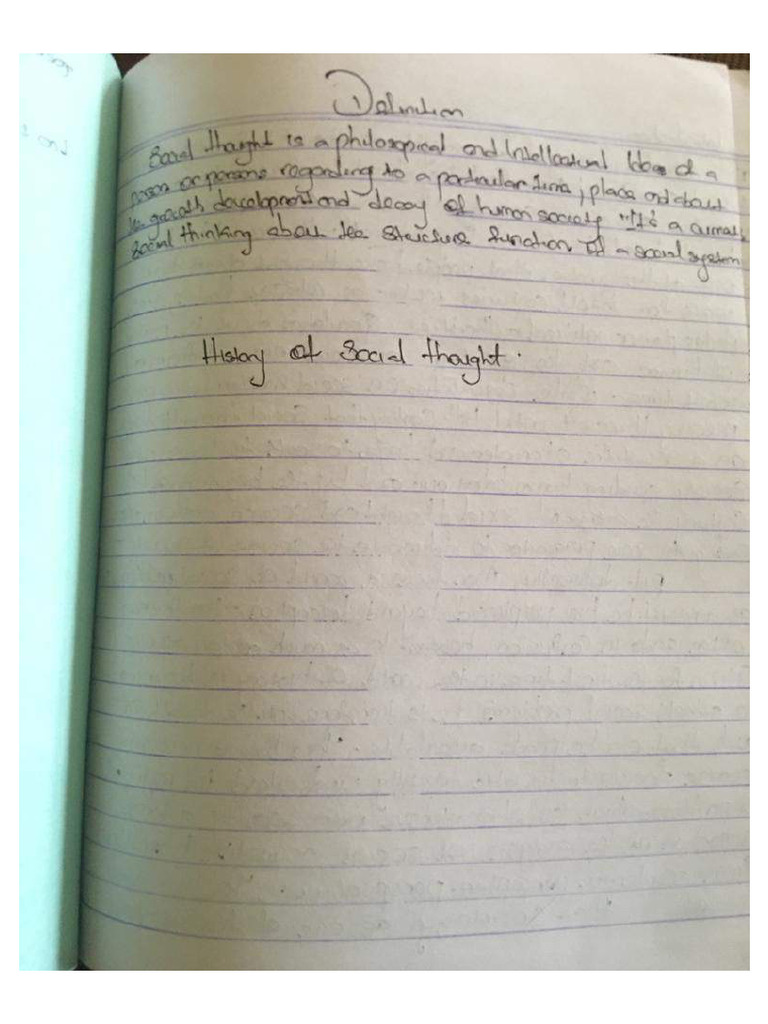 Definition
Social thought is a philosopical and Intellectual Idea of a
person or persons regarding to a particular time, place and about
the growth development and decay of human society "It's a
social thinking about the structure function of a social system
History of Social thought.